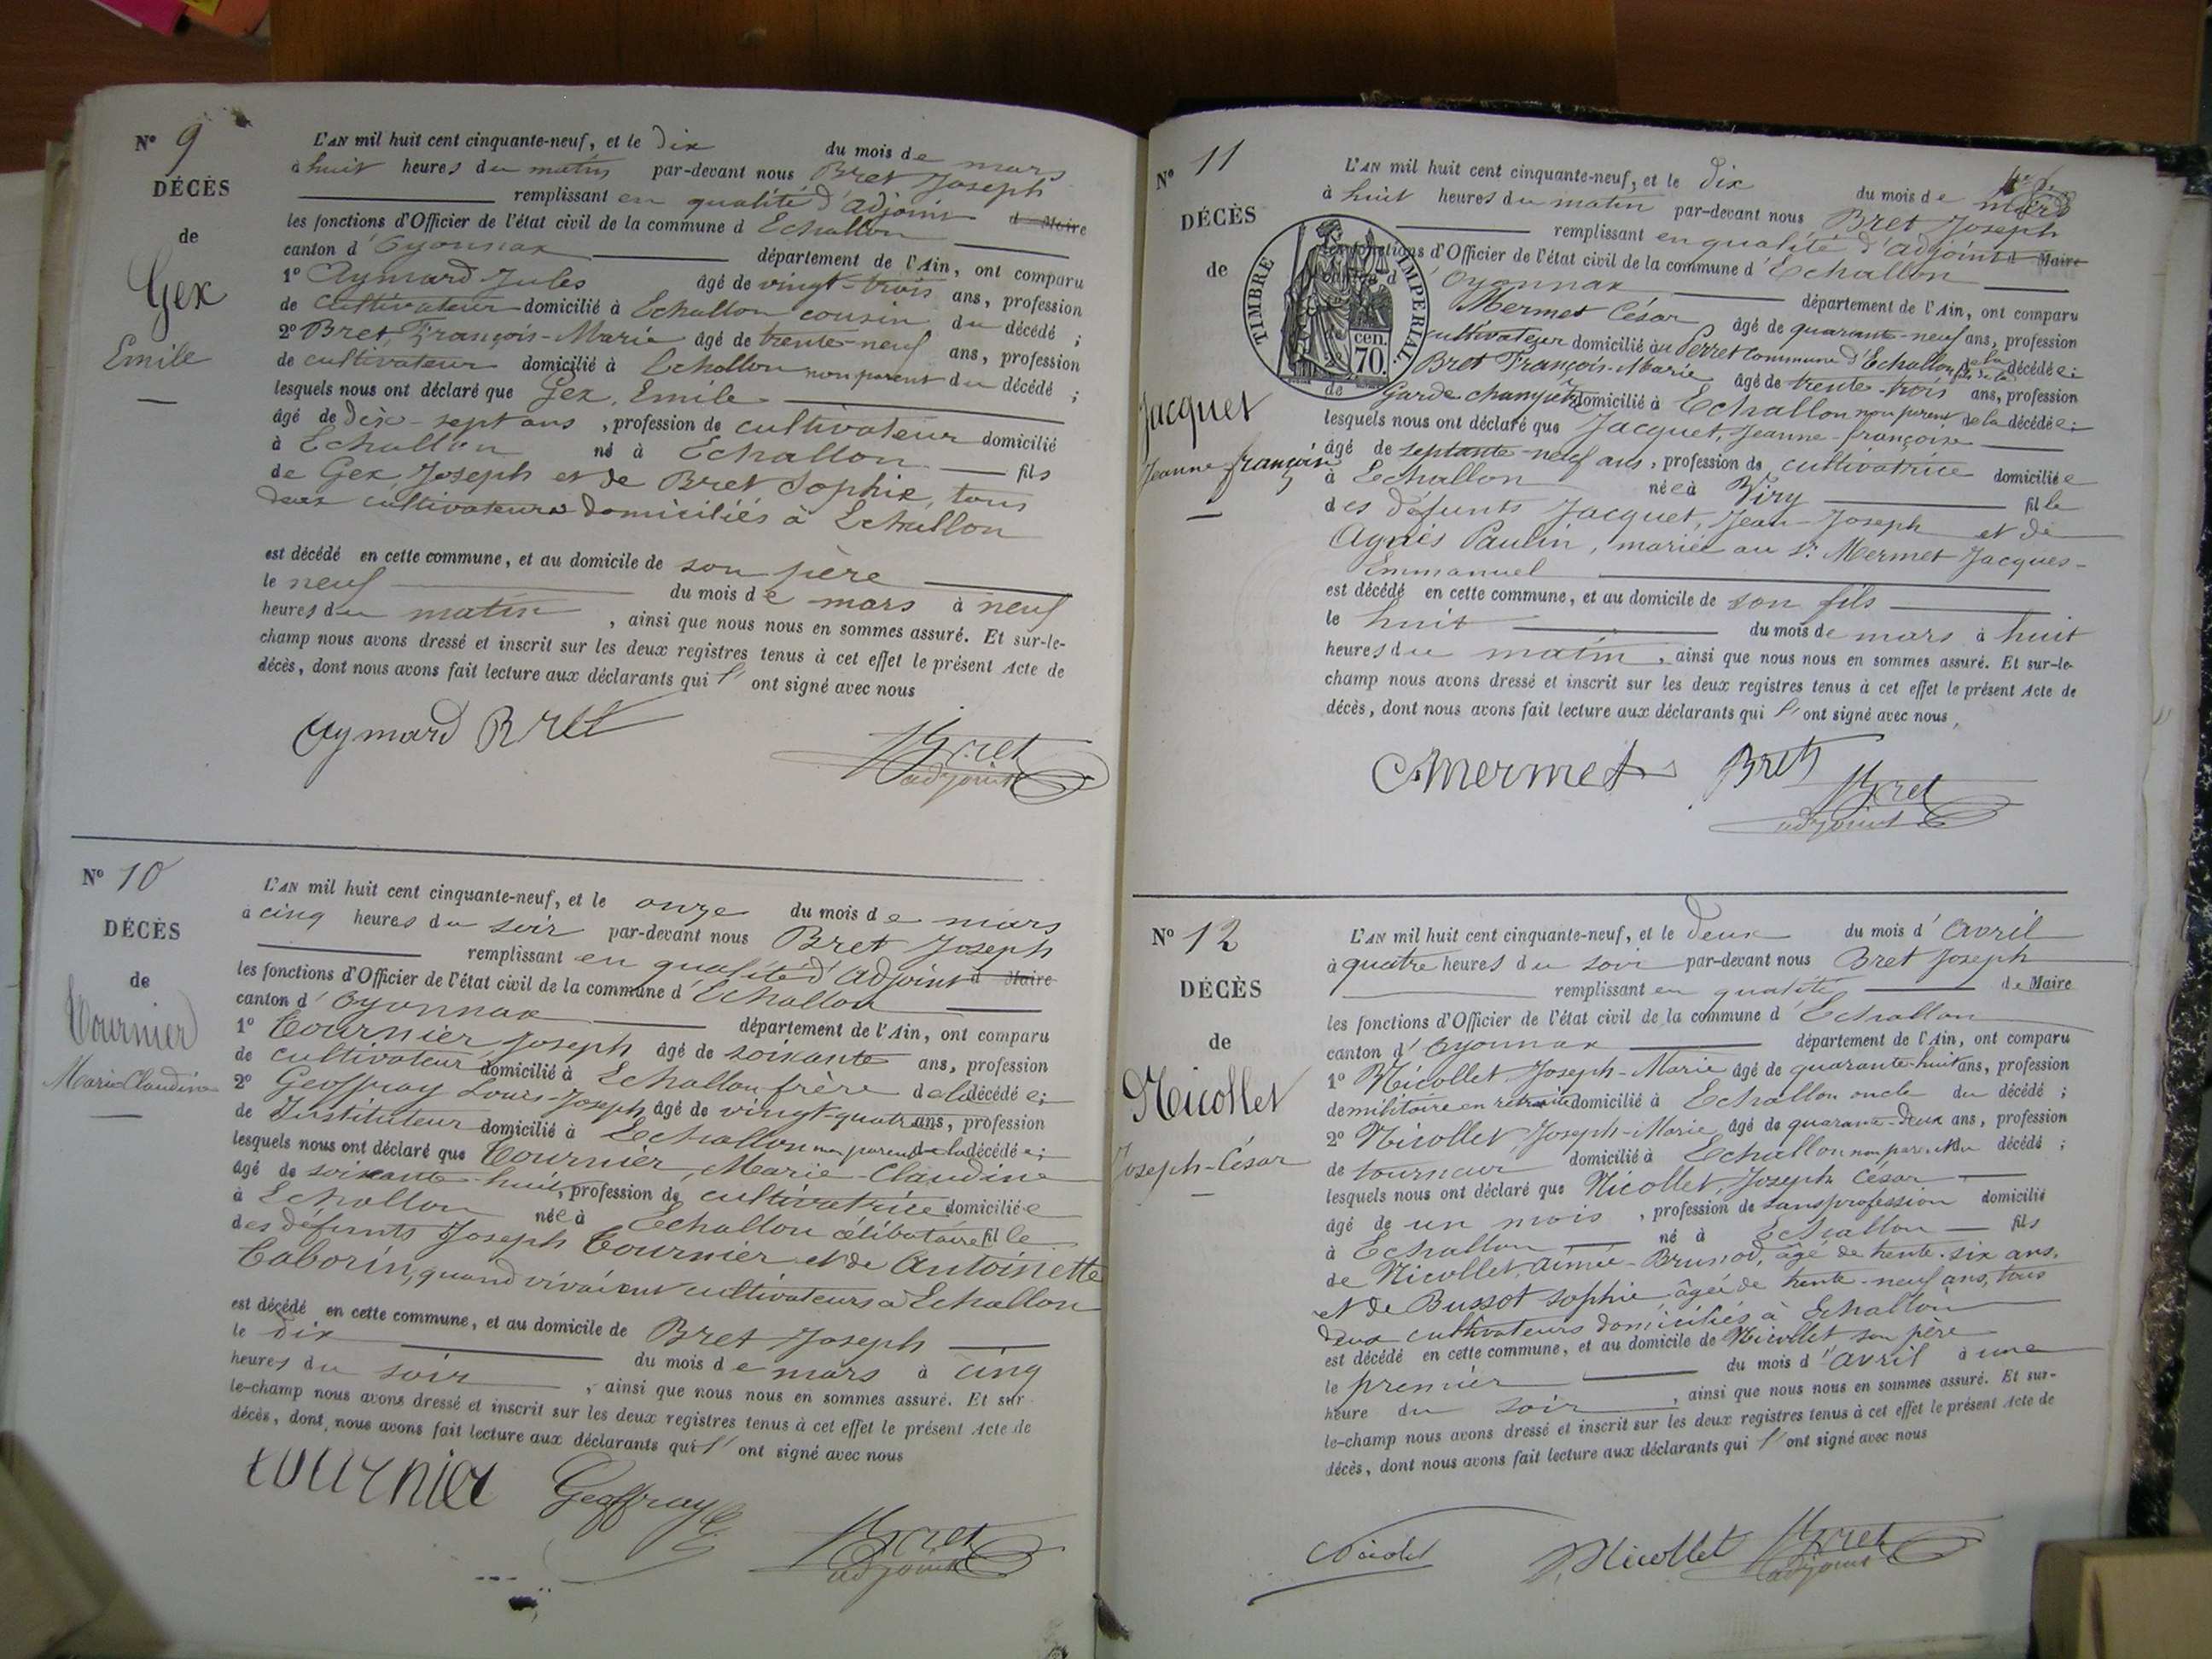 N° 9
DÉCÈS
de
Gex
Emile
L'AN mil huit cent cinquante-neuf, et le dix du mois de mars
à huit heures du matin par-devant nous Bret Joseph
remplissant en qualité d'adjoint d Maire
les fonctions d'Officier de l'état civil de la commune d Echallon
canton d'Oyonnax département de l'Ain, ont comparu
1° Aymard Jules âgé de vingt-trois ans, profession
de cultivateur domicilié à Echallon cousin du décédé ;
2° Bret, François-Marie âgé de trente-neuf ans, profession
de cultivateur domicilié à Echallon non parent du décédé ;
lesquels nous ont déclaré que Gex, Emile
âgé de dix-sept ans, profession de cultivateur domicilié
à Echallon né à Echallon fils
de Gex, Joseph et de Bret Sophie, tous
deux cultivateurs domiciliés à Echallon
est décédé en cette commune, et au domicile de son père
le neuf du mois de mars à neuf
heures du matin, ainsi que nous nous en sommes assuré. Et sur-le-
champ nous avons dressé et inscrit sur les deux registres tenus à cet effet le présent Acte de
décès, dont nous avons fait lecture aux déclarants qui l' ont signé avec nous
Aymard Bret
Bret
adjoint
N° 10
DÉCÈS
de
Tournier
Marie-Claudine
L'AN mil huit cent cinquante-neuf, et le onze du mois de mars
à cinq heures du soir par-devant nous Bret Joseph
remplissant en qualité d'adjoint d Maire
les fonctions d'Officier de l'état civil de la commune d'Echallon
canton d'Oyonnax département de l'Ain, ont comparu
1° Tournier Joseph âgé de soixante ans, profession
de cultivateur domicilié à Echallon frère de la décédée ;
2° Geoffray Louis-Joseph âgé de vingt-quatre ans, profession
de Instituteur domicilié à Echallon non parent de la décédée ;
lesquels nous ont déclaré que Tournier, Marie-Claudine
âgé de soixante-huit, profession de cultivatrice domiciliée
à Echallon née à Echallon célibataire fille
des défunts Joseph Tournier et de Antoinette
Taborin, quand vivaient cultivateurs à Echallon
est décédé en cette commune, et au domicile de Bret Joseph
le dix du mois de mars à cinq
heures du soir, ainsi que nous nous en sommes assuré. Et sur
le-champ nous avons dressé et inscrit sur les deux registres tenus à cet effet le présent Acte de
décès, dont nous avons fait lecture aux déclarants qui l' ont signé avec nous
tournier Geoffray
Bret
adjoint
N° 11
DÉCÈS
de
Jacquet
Jeanne-françoise
TIMBRE IMPERIAL
70. cen.
L'AN mil huit cent cinquante-neuf, et le dix du mois de mars
à huit heures du matin par-devant nous Bret Joseph
remplissant en qualité d'adjoint d Maire
fonctions d'Officier de l'état civil de la commune d'Echallon
d'Oyonnax département de l'Ain, ont comparu
Mermet César âgé de quarante-neuf ans, profession
cultivateur domicilié au Perret commune d'Echallon fils de la décédée ;
Bret François-Marie âgé de trente-trois ans, profession
de Garde champêtre domicilié à Echallon non parent de la décédée ;
lesquels nous ont déclaré que Jacquet, Jeanne-françoise
âgé de septante-neuf ans, profession de cultivatrice domiciliée
à Echallon née à Viry fille
des défunts Jacquet, Jean-Joseph et de
Agnès Paulin, mariée au Sr. Mermet Jacques-
Emmanuel
est décédé en cette commune, et au domicile de son fils
le huit du mois de mars à huit
heures du matin, ainsi que nous nous en sommes assuré. Et sur-le-
champ nous avons dressé et inscrit sur les deux registres tenus à cet effet le présent Acte de
décès, dont nous avons fait lecture aux déclarants qui l' ont signé avec nous,
C.mermet Bret
Bret
adjoint
N° 12
DÉCÈS
de
Nicollet
Joseph-César
L'AN mil huit cent cinquante-neuf, et le deux du mois d'Avril
à quatre heures du soir par-devant nous Bret Joseph
remplissant en qualité de Maire
les fonctions d'Officier de l'état civil de la commune d'Echallon
canton d'Oyonnax département de l'Ain, ont comparu
1° Nicollet Joseph-Marie âgé de quarante-huit ans, profession
de militaire en retraite domicilié à Echallon oncle du décédé ;
2° Nicollet Joseph-Marie âgé de quarante-deux ans, profession
de tourneur domicilié à Echallon non parent du décédé ;
lesquels nous ont déclaré que Nicollet, Joseph César
âgé de un mois, profession de sans profession domicilié
à Echallon né à Echallon fils
de Nicollet, Aimé-Brunod, âgé de trente-six ans,
et de Bussot Sophie âgée de trente-neuf ans, tous
deux cultivateurs domiciliés à Echallon
est décédé en cette commune, et au domicile de Nicollet son père
le premier du mois d'avril à une
heure du soir, ainsi que nous nous en sommes assuré. Et sur-
le-champ nous avons dressé et inscrit sur les deux registres tenus à cet effet le présent Acte de
décès, dont nous avons fait lecture aux déclarants qui l' ont signé avec nous
Nicollet Bret
adjoint